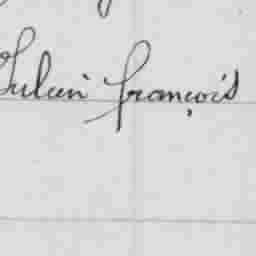 Julien françois